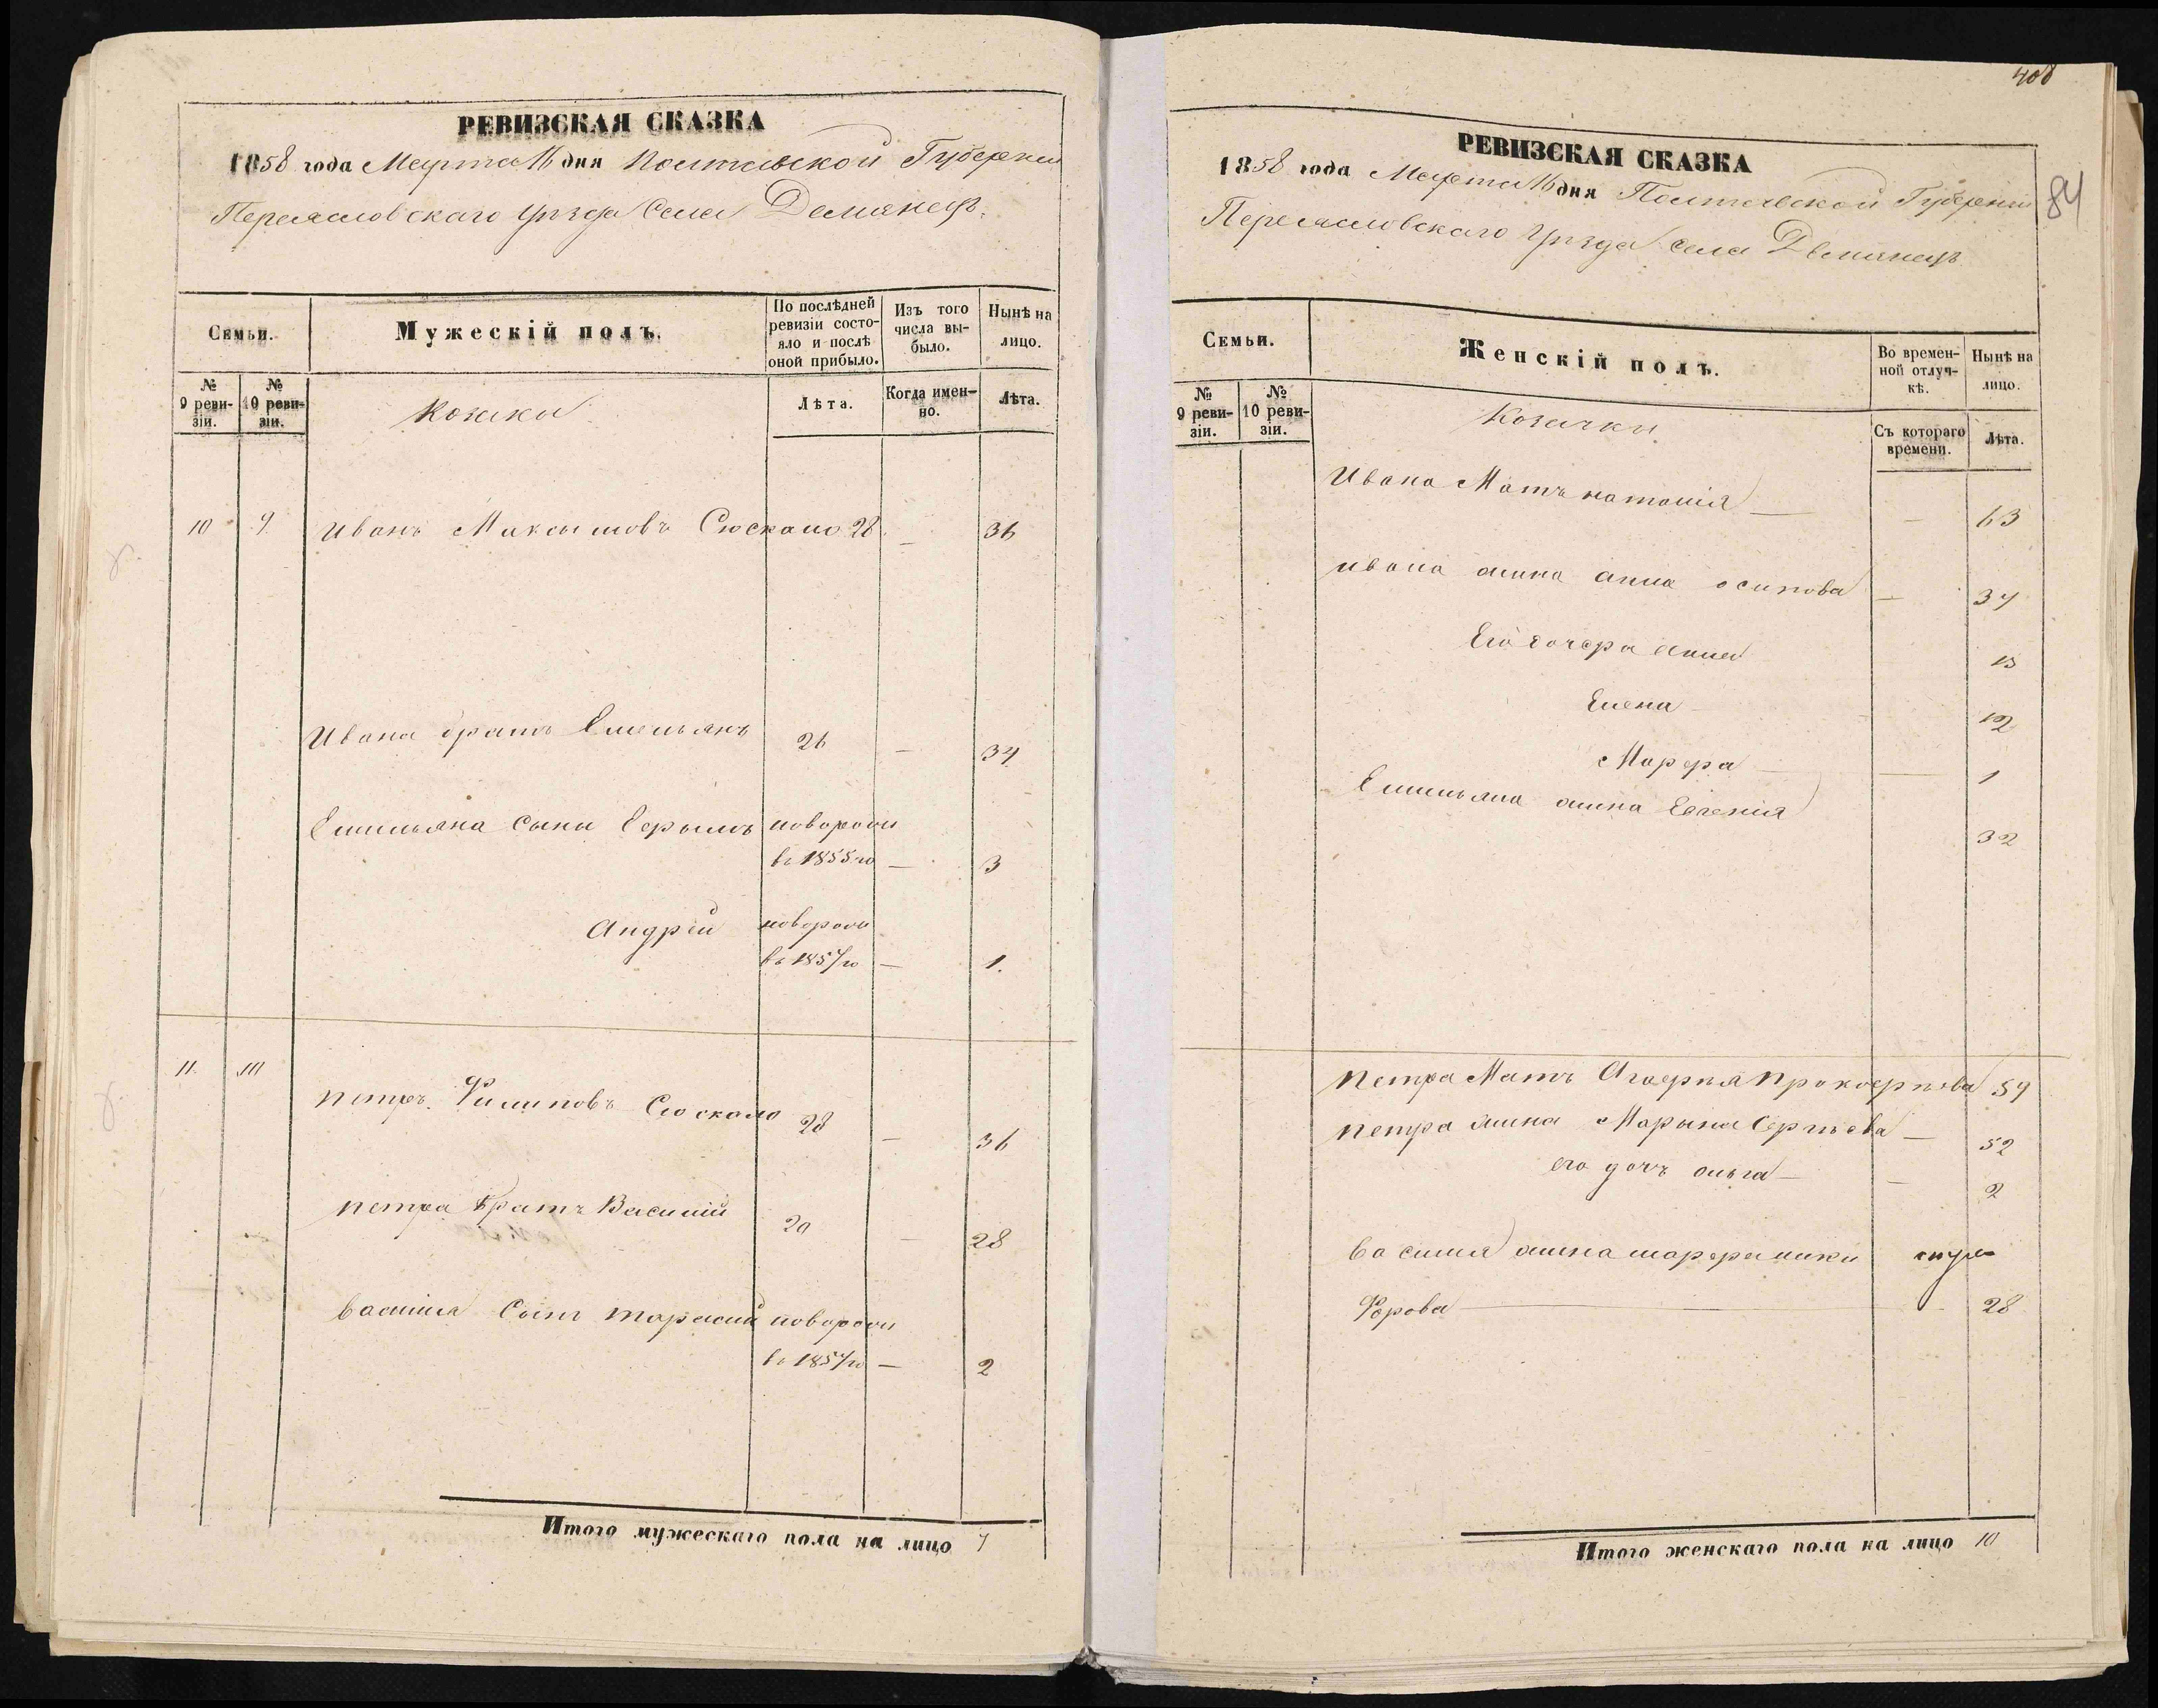 РЕВИЗСКАЯ СКАЗКА
1858 года Марта 16 дня Полтавской Губернии
Переясловскаго Уезда Села Демянецъ.
Семьи.
Мужескій полъ.
По послѣдней ревизіи состояло и послѣ оной прибыло.
Изъ того числа выбыло.
Нынѣ на лицо.
№ 9 ревизіи.
№ 10 ревизіи.
Козаки
Лѣта.
Когда именно.
Лѣта.
10 9 Иванъ Максимовъ Сюскало 28 — 36
Ивана братъ Емельянъ 26 — 34
Емельяна сыны новорожи
въ 1855 го — 3
Андрей новорожи
въ 1857 го — 1.
11. 10 Петръ Филиповъ Сюскало 28 — 36
Петра братъ Василий 20 — 28
Василия Сынъ Тарасий новорожи
въ 1857 го — 2
Итого мужескаго пола на лицо 7
408
84
РЕВИЗСКАЯ СКАЗКА
1858 года Марта 16 дня Полтавской Губернии
Переясловскаго Уезда Села Демянецъ
Семьи.
Женскій полъ.
Во временной отлучкѣ.
Нынѣ на лицо.
№ 9 ревизіи.
№ 10 ревизіи.
Козачки
Съ котораго времени.
Лѣта.
Ивана Мать наталія — — 63
ивана жина анна осипова — 34
Его дочера анна 13
Елена 12
Марфа — — 1
Емильяна жина Евгения 32
Петра Мать Агафия Прокофиева 59
Петра жина Марина Сергиева — 52
его дочъ ольга — — 2
Василия жина
28
Итого женскаго пола на лицо 10